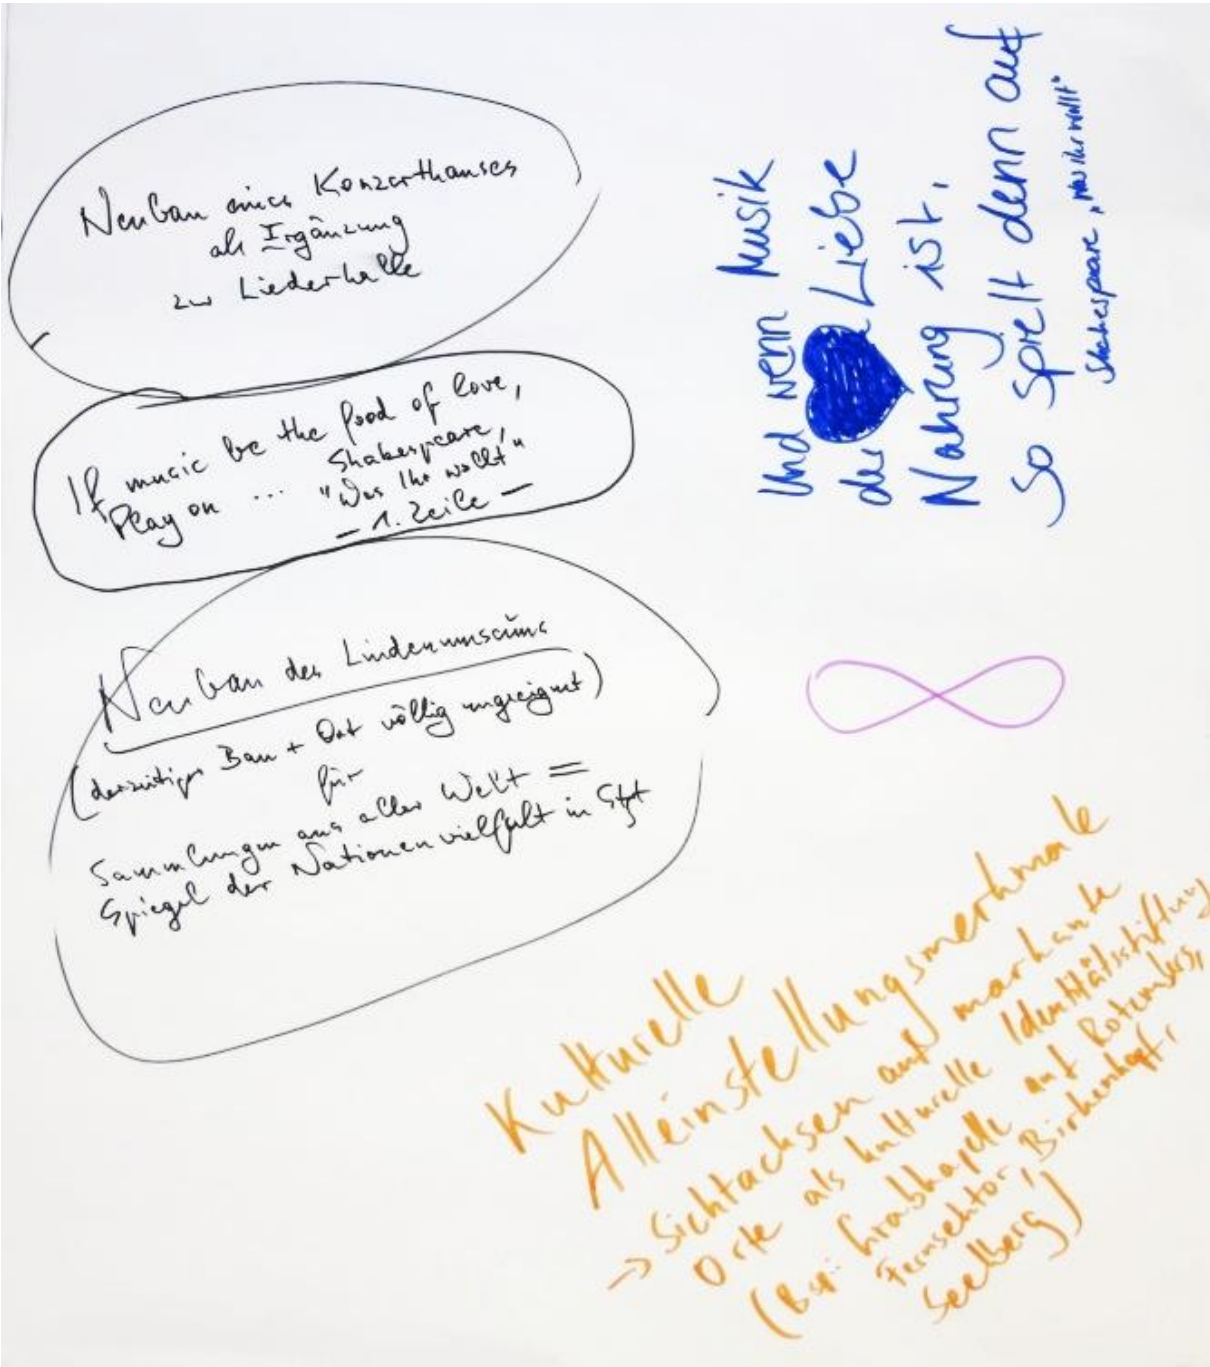 Neubau eines Konzerthauses
als Ergänzung
zur Liederhalle
If music be the food of love,
Play on ... Shakespeare,
"Was Ihr wollt"
– 1. Zeile –
Neubau des Lindenmuseums
(derzeitiger Bau + Ort völlig ungeeignet)
für
Sammlungen aus aller Welt =
Spiegel der Nationenvielfalt in Stgt
Und wenn Musik
der Liebe
Nahrung ist,
So spielt denn auf
Shakespeare, „Was ihr wollt“
Kulturelle
Alleinstellungsmerkmale
→ Sichtachsen auf markante
Orte als kulturelle Identitätsstiftung
(Bsp.: Grabkapelle auf Rotenberg,
Birkenkopf,
Seelberg)